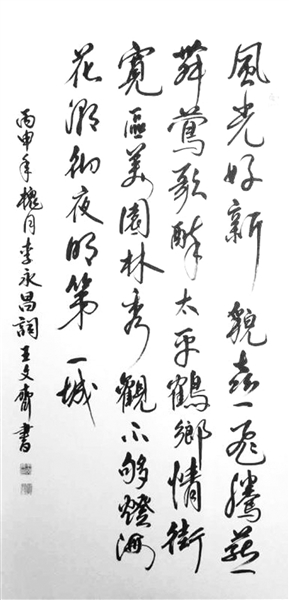 風光好新貌喜一飛騰燕
舞鶯歌醉太平鶴鄉情街
寬區美園林秀觀不够燈海
花潮彻夜明第一城
丙申年槐月李永昌詞王文齊書